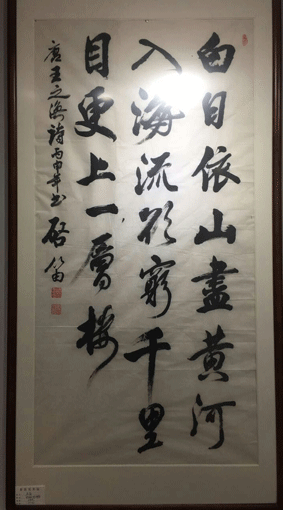 白日依山盡黄河
入海流欲窮千里
目更上一層樓
唐王之渙詩丙申年書